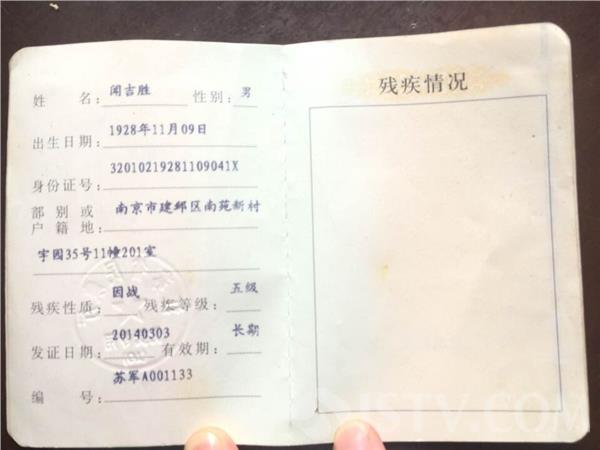 姓 名： 闻吉胜 性别： 男
出生日期： 1928年11月09日
身份证号： 32010219281109041X
部别或 南京市建邺区南苑新村
户籍地：
宇园35号11幢201室
残疾性质： 因战 残疾等级： 五级
发证日期： 20140303 有效期： 长期
编 号： 苏军A001133
残疾情况
JSTV.COM